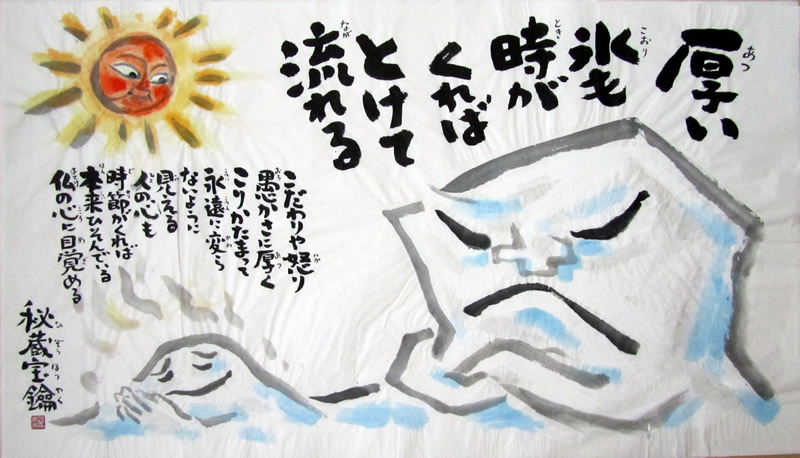 厚い
氷も
時が
くれば
とけて
流れる
こだわりや怒り
愚かさに厚く
こりかたまって
永遠に変ら
ないように
見える
人の心も
時節がくれば
本来ひそんでいる
仏の心に目覚める
秘蔵宝鑰